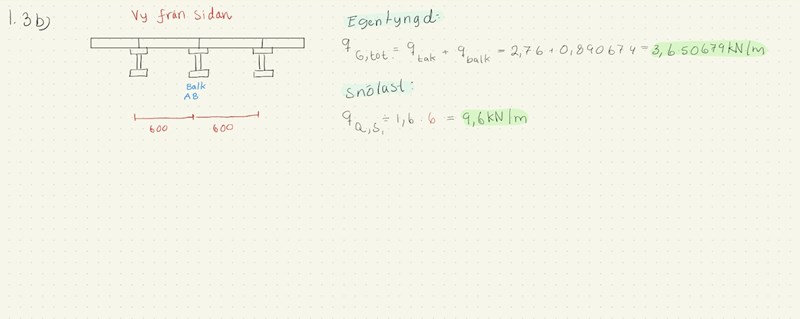 1.3b)
Vy från sidan
Balk
AB
600
600
Egentyngd:
q G,tot = q tak + q balk = 2,76 + 0,890674 = 3,650679 kN/m
Snölast:
q Q,S, = 1,6 · 6 = 9,6 kN/m